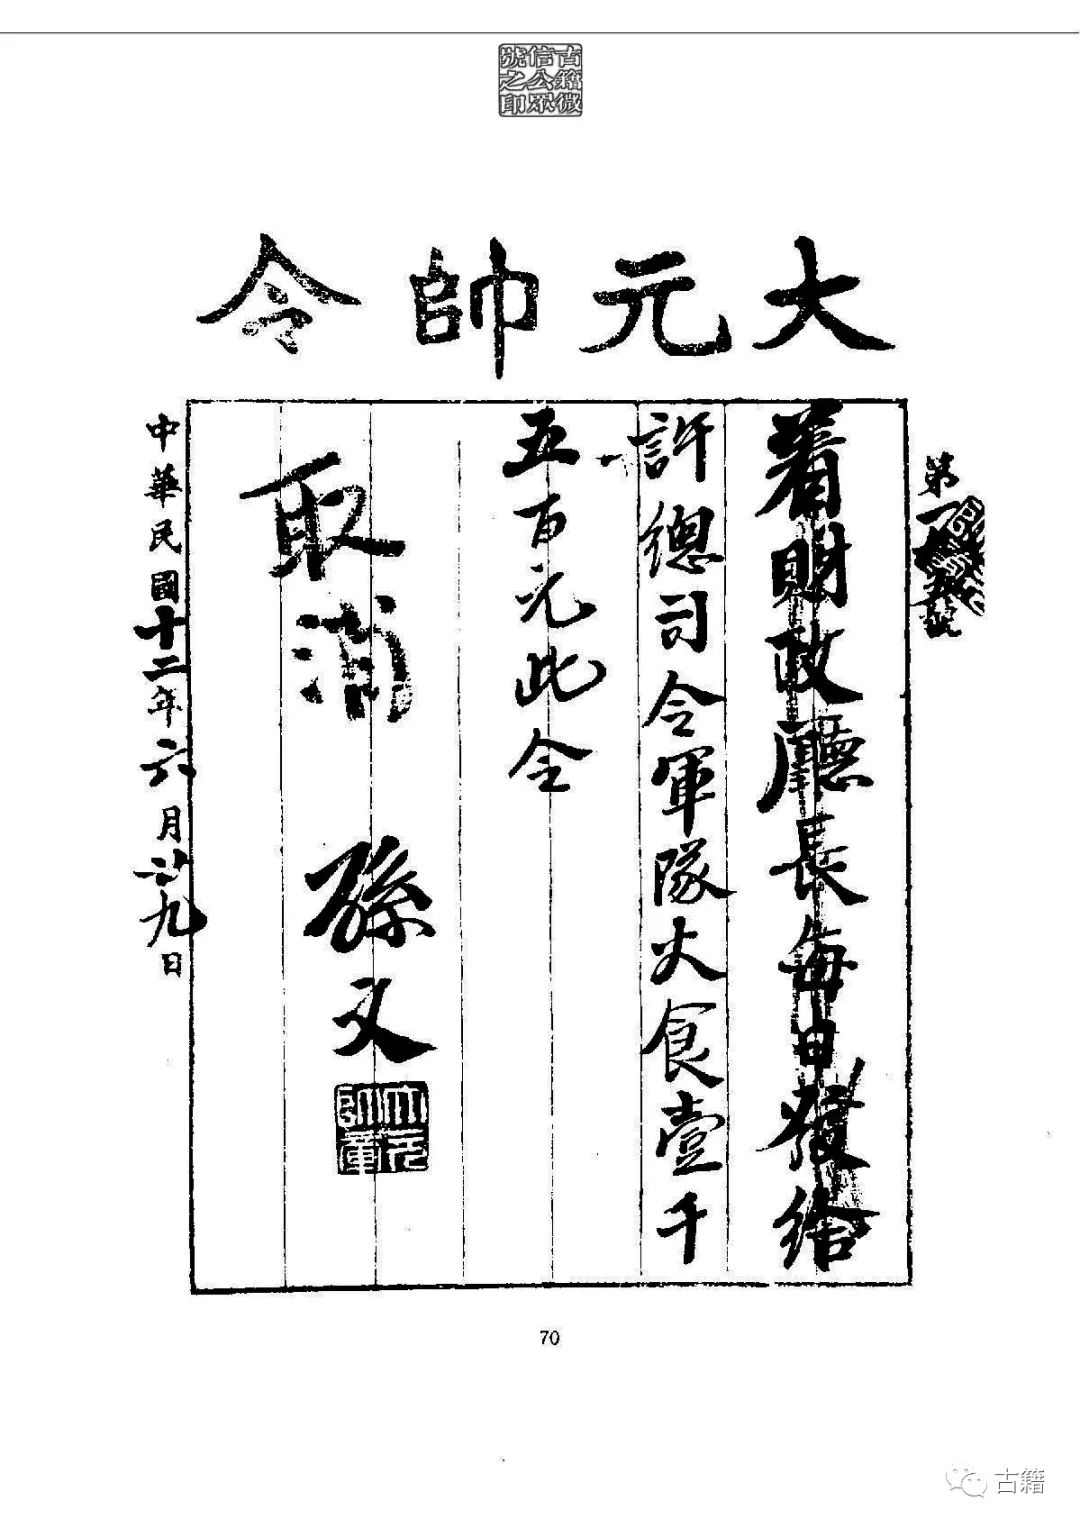 古籍微
信公眾
號之印
大元帥令
着財政廳長每日發給
許總司令軍隊火食壹千
五百元此令
取消
孫文
大元帥章
中華民國十二年六月廿九日
第一號
70
古籍